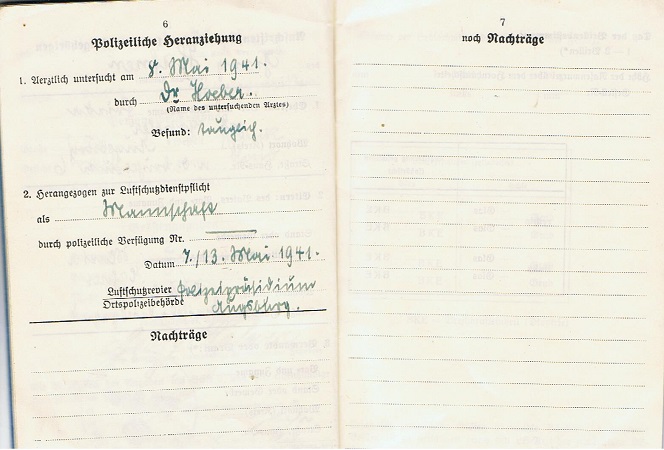 6
Polizeiliche Heranziehung
1. Aerztlich untersucht am 8. Mai 1941.
durch Dr Hoeber.
(Name des untersuchenden Arztes)
Befund: tauglich.
2. Herangezogen zur Luftschutzdienstpflicht
als Mannschaft
durch polizeiliche Verfügung Nr.
Datum 7./13. Mai 1941.
Luftschutzrevier
Ortspolizeibehörde
Polizeipräsidium
Augsburg.
Nachträge
7
noch Nachträge